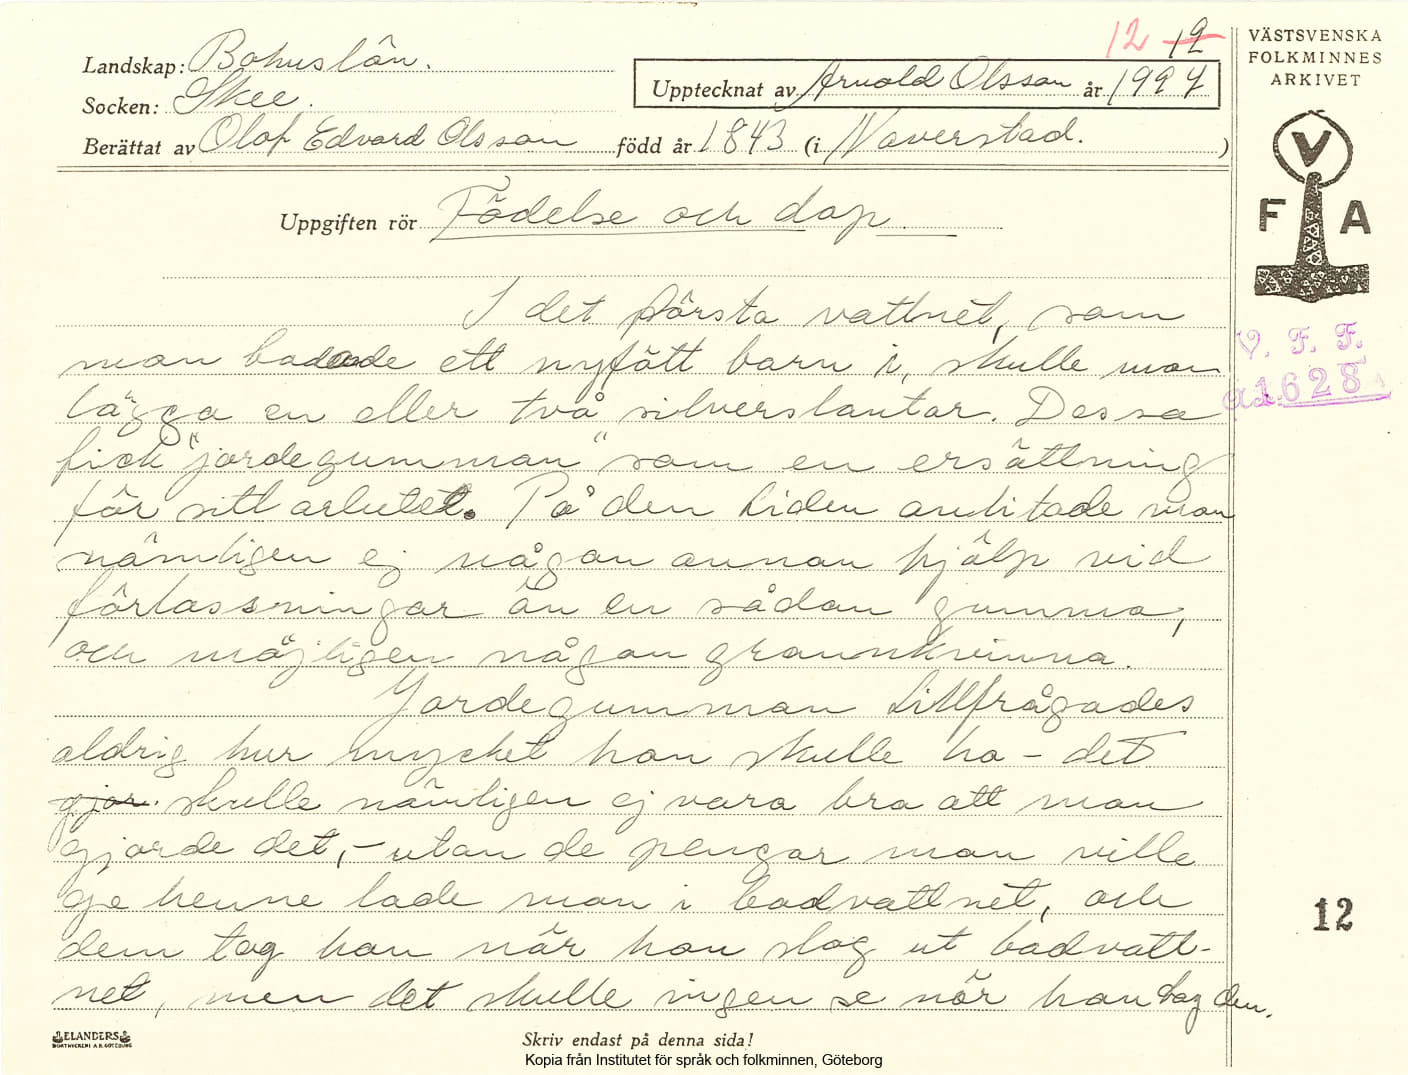 12 12
VÄSTSVENSKA
FOLKMINNES
ARKIVET
Landskap: Bohuslän.
Socken: Skee.
Upptecknat av Arnold Olsson år 1927
Berättat av Olof Edvard Olsson född år 1843 (i Naverstad. )
V
F A
Uppgiften rör Födelse och dop.
V. F. F.
a1628
I det första vattnet, som
man badade ett nyfött barn i, skulle man
lägga en eller två silverslantar. Dessa
fick "jordegumman" som en ersättning
för sitt arbetet. På den tiden anlitade man
nämligen ej någon annan hjälp vid
förlossningar än en sådan gumma,
och möjligen någon grannkvinna.
Jordegumman tillfrågades
aldrig hur mycket hon skulle ha – det
gjor. skulle nämligen ej vara bra att man
gjorde det, – utan de pengar man ville
ge henne lade man i badvattnet, och
dem tog hon när hon slog ut badvatt-
net, men det skulle ingen se när hon tog den.
12
ELANDERS
BOKTRYCKERI A.B. GÖTEBORG
Skriv endast på denna sida!
Kopia från Institutet för språk och folkminnen, Göteborg